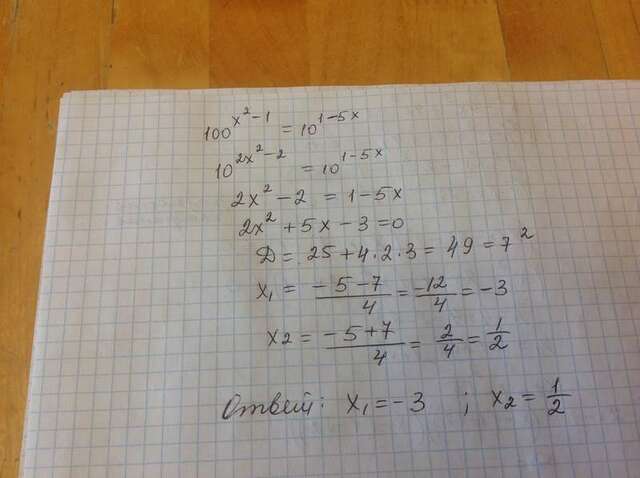 100^{x^2-1} = 10^{1-5x}
10^{2x^2-2} = 10^{1-5x}
2x^2 - 2 = 1-5x
2x^2 + 5x - 3 = 0
D = 25 + 4·2·3 = 49 = 7^2
x_1 = \frac{-5-7}{4} = \frac{-12}{4} = -3
x_2 = \frac{-5+7}{4} = \frac{2}{4} = \frac{1}{2}
Ответ: x_1 = -3 ; x_2 = \frac{1}{2}